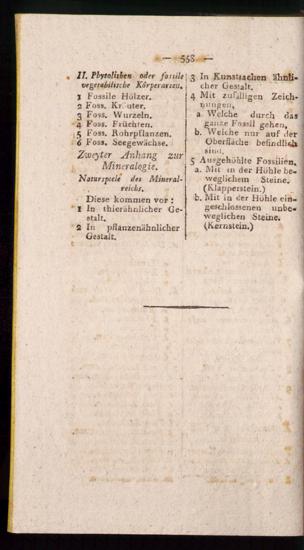 — 558 —
II. Phytolithen oder fossile
vegetabilische Körperarten.
1 Fossile Hölzer.
2 Foss. Kräuter.
3 Foss. Wurzeln.
4 Foss. Früchten.
5 Foss. Rohrpflanzen.
6 Foss. Seegewächse.
Zweyter Anhang zur
Mineralogie.
Naturspiele des Mineral-
reichs.
Diese kommen vor:
1 In thierähnlicher Ge-
stalt.
2 In pflanzenähnlicher
Gestalt.
3 In Kunstsachen ähnli-
cher Gestalt.
4 Mit zufälligen Zeich-
nungen,
a. Welche durch das
ganze Fossil gehen,
b. Welche nur auf der
Oberfläche befindlich
sind.
5 Ausgehöhlte Fossilien.
a. Mit in der Höhle be-
weglichem Steine.
(Klapperstein.)
b. Mit in der Höhle ein-
geschlossenen unbe-
weglichen Steine.
(Kernstein.)